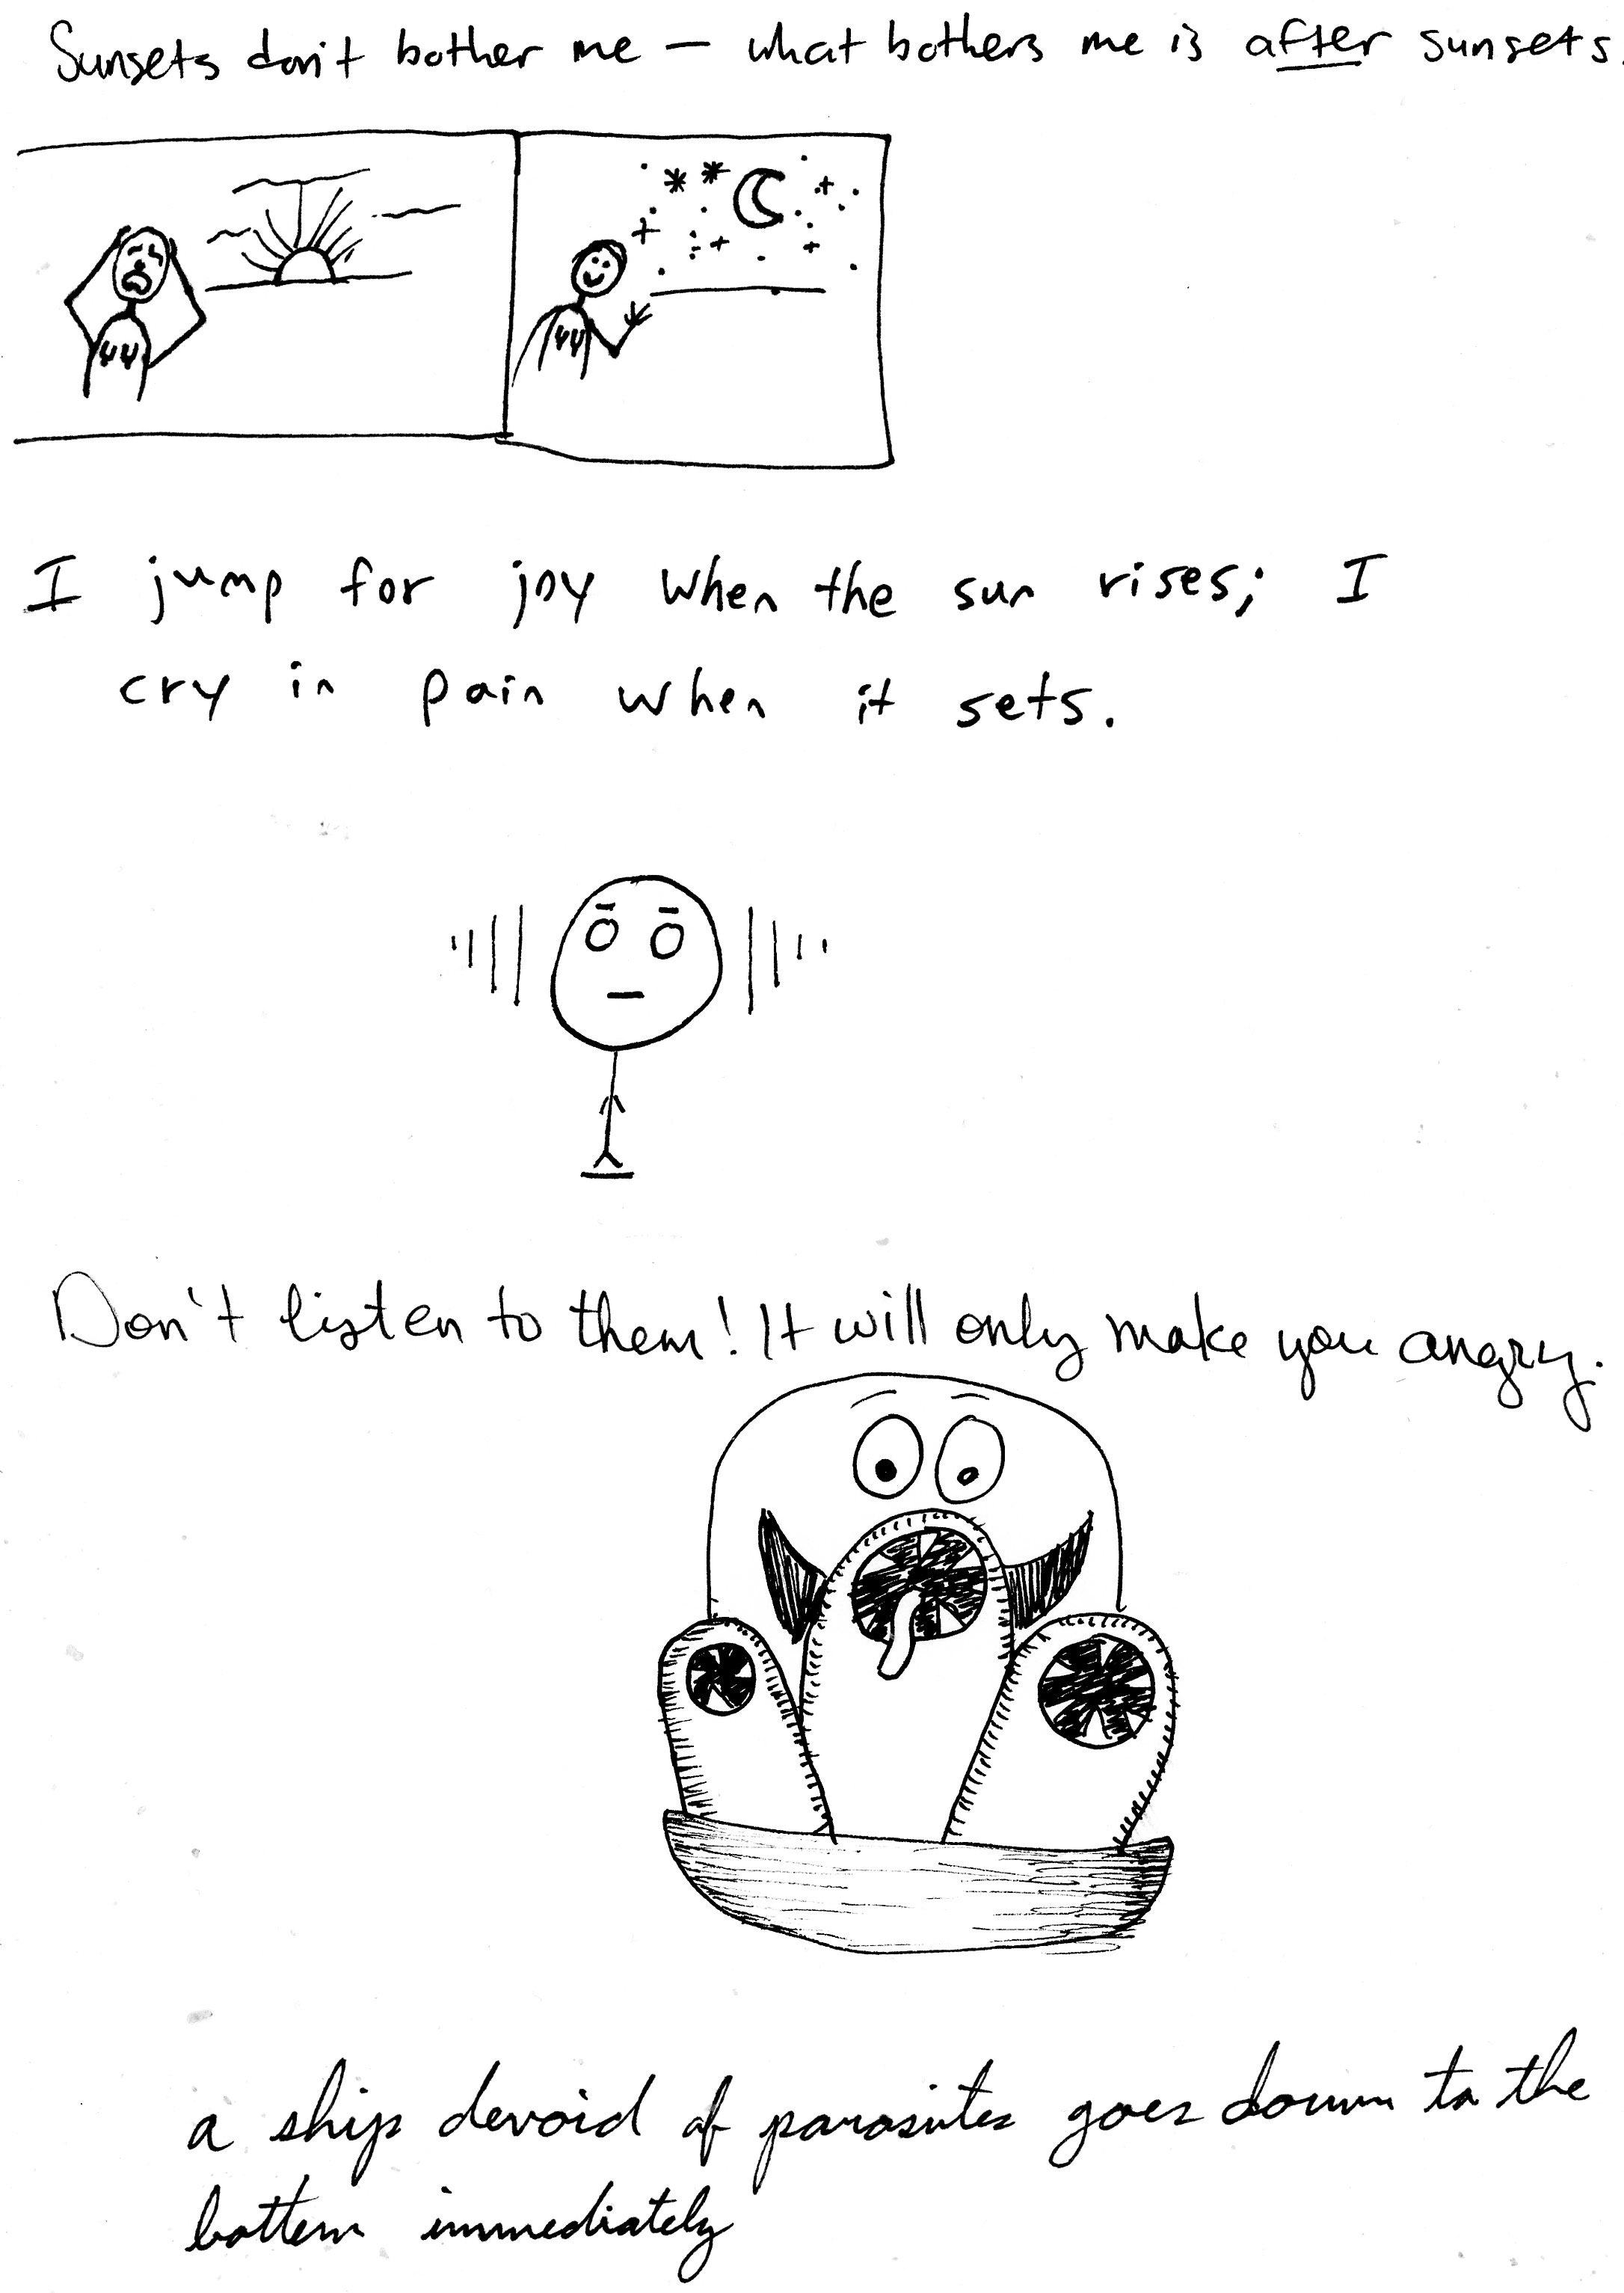 Sunsets don't bother me — what bothers me is after sunsets.
I jump for joy when the sun rises; I
cry in pain when it sets.
Don't listen to them! It will only make you angry.
a ship devoid of parasites goes down to the
bottem immediately